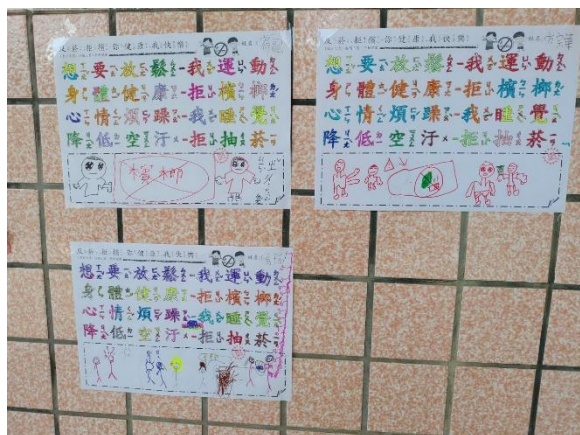 反菸拒檳你健康我快樂
想要放鬆-我運動
身體健康-拒檳榔
心情煩躁-我睡覺
降低空汙-拒抽菸
檳榔
反菸拒檳你健康我快樂
想要放鬆-我運動
身體健康-拒檳榔
心情煩躁-我睡覺
降低空汙-拒抽菸
反菸拒檳你健康我快樂
想要放鬆-我運動
身體健康-拒檳榔
心情煩躁-我睡覺
降低空汙-拒抽菸